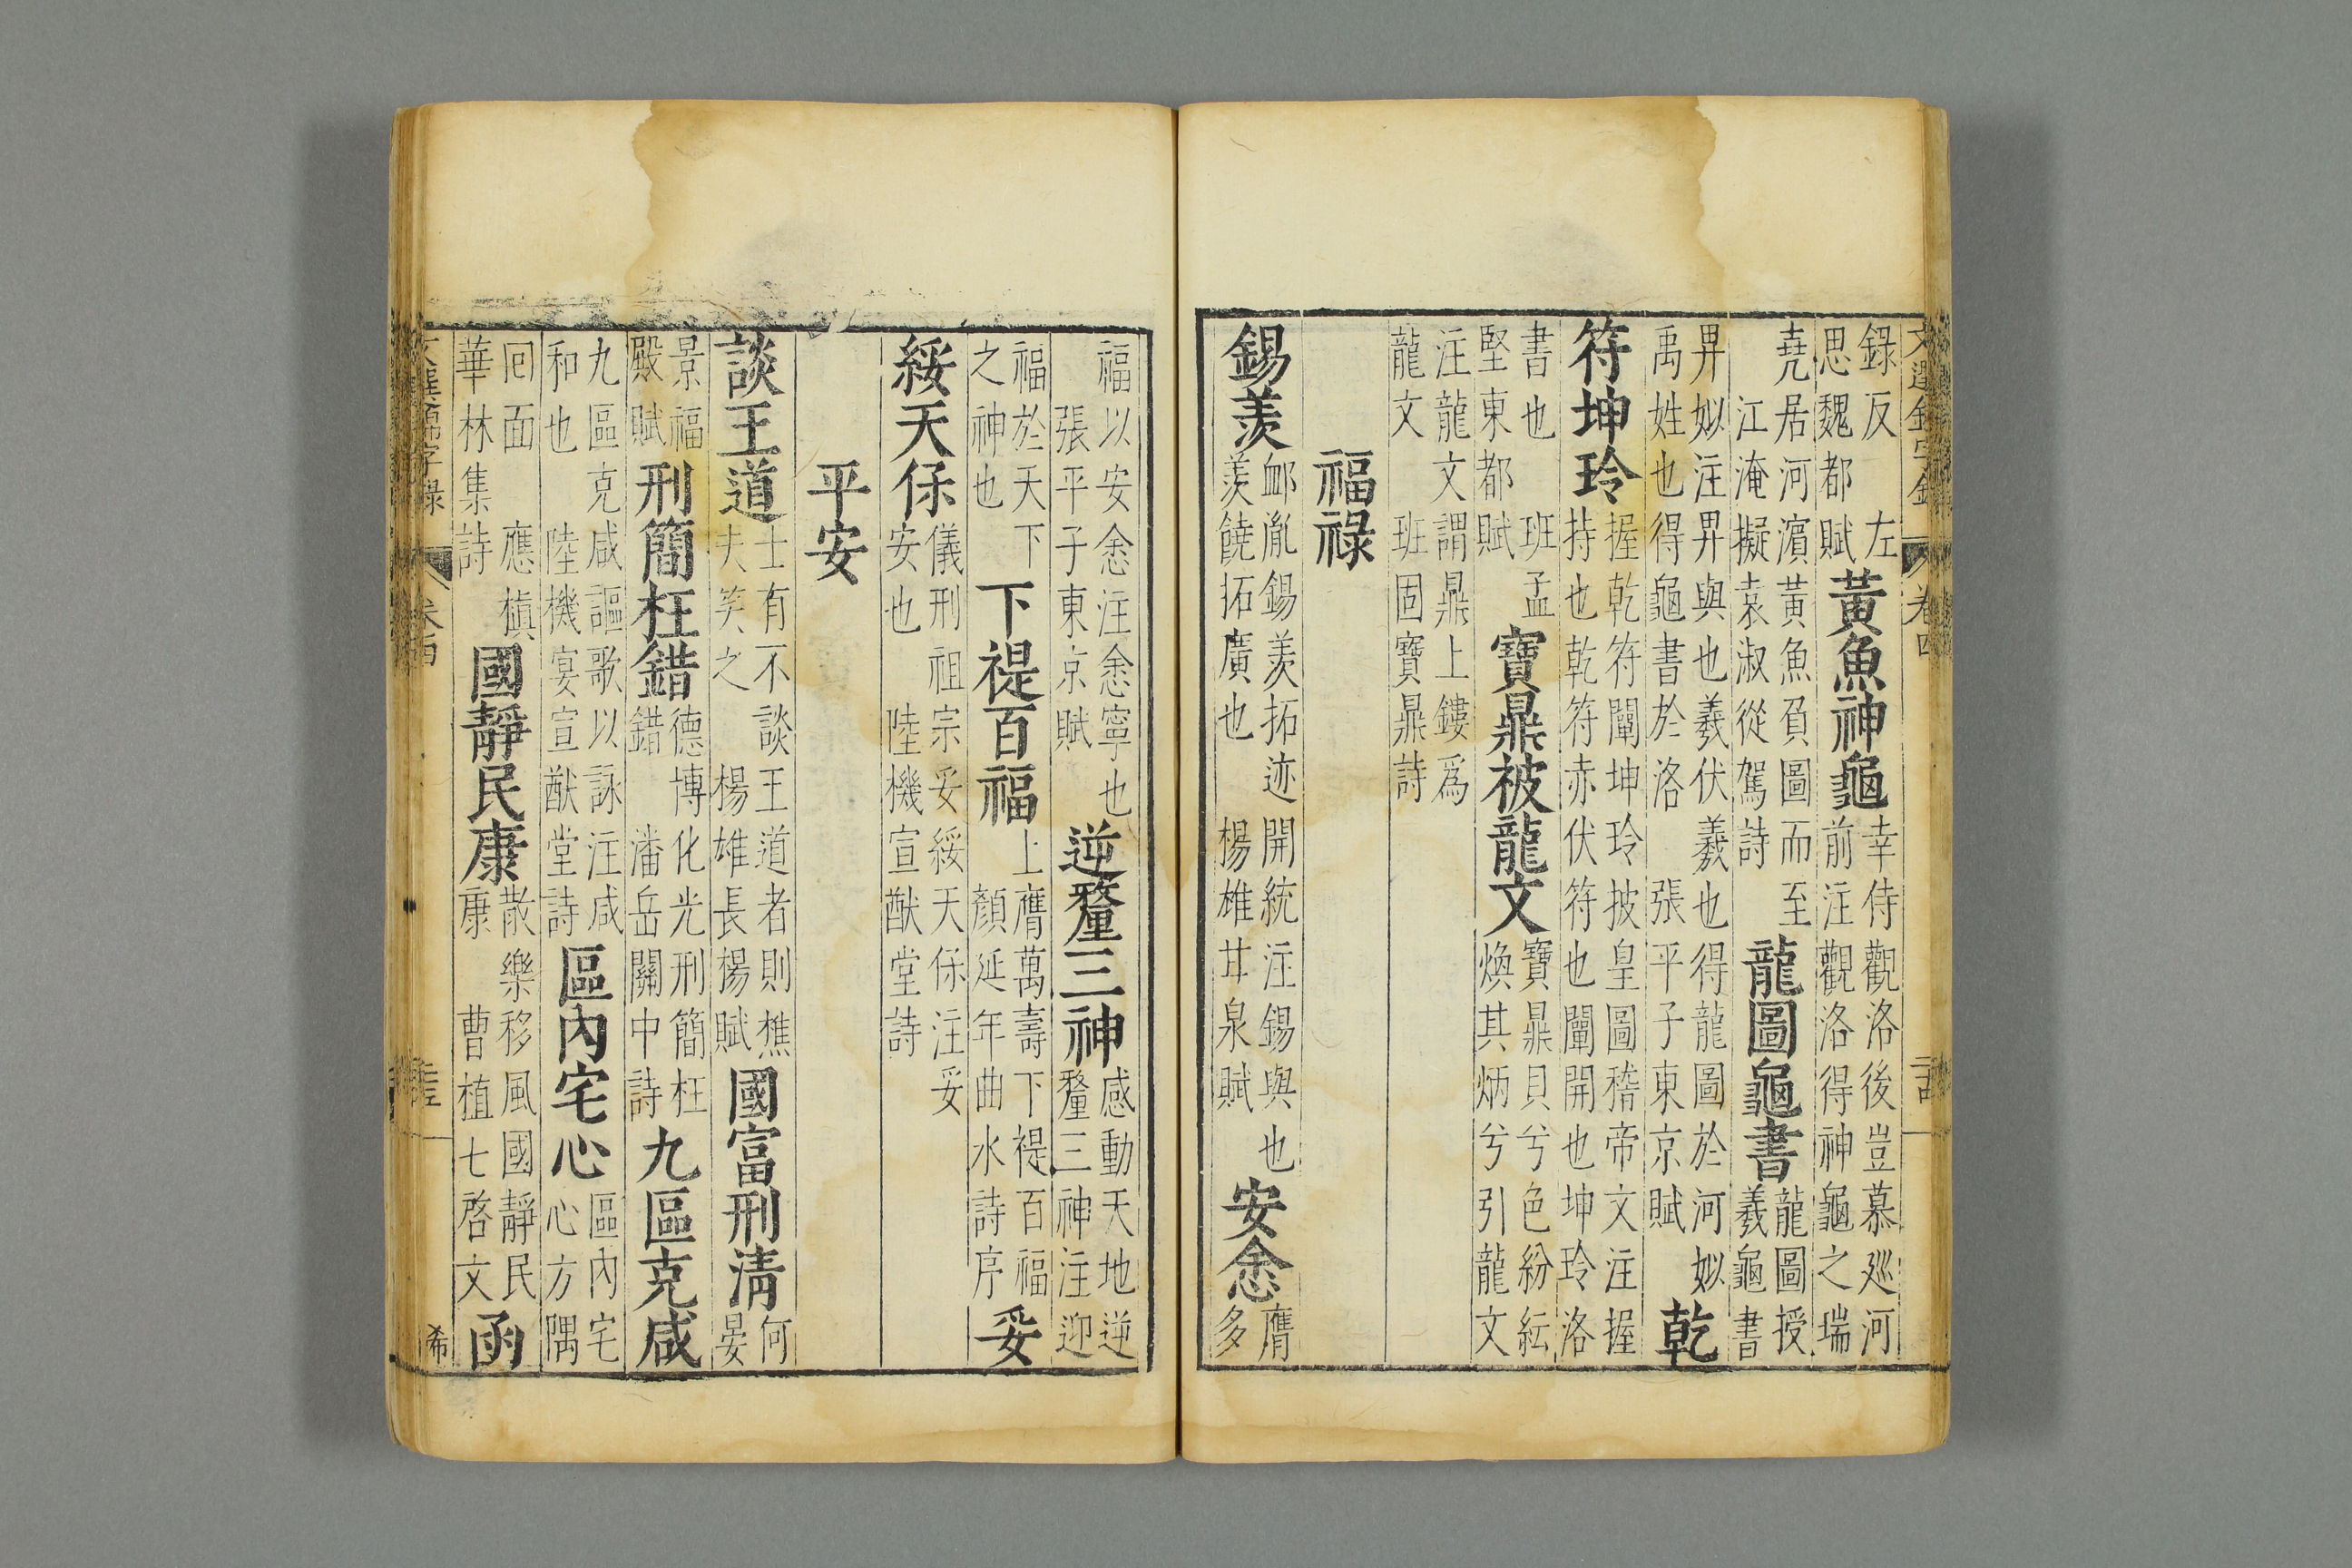 文選錦字錄 卷四
錄反 左思魏都賦 黃魚神龜 幸侍觀洛後豈慕巡河前注觀洛得神龜之瑞
堯居河濵黃魚負圖而至江淹擬袁淑從駕詩 龍圖龜書 龍圖授羲龜書
畀姒注畀與也羲伏羲也得龍圖於河姒禹姓也得龜書於洛 張平子東京賦 乾
符坤玲 握乾符闡坤玲披皇圖稽帝文注握持也乾符赤伏符也闡開也坤玲洛
書也 班孟堅東都賦 寶鼎被龍文 寶鼎貝兮色紛紜煥其炳兮引龍文
注龍文謂鼎上鏤爲龍文 班固寶鼎詩
福祿
錫羨 衈胤錫羨拓迹開統注錫與也羨饒拓廣也 楊雄甘泉賦 安悆 膺多
福以安悆注悆寧也張平子東京賦 逆釐三神 感動天地逆釐三神注迎
福於天下之神也 下禔百福 上膺萬壽下禔百福顏延年曲水詩序 妥
綏天保 儀刑祖宗妥綏天保注妥安也 陸機宣猷堂詩
平安
談王道 士有不談王道者則樵夫笑之 楊雄長楊賦 國富刑清 何晏
景福殿賦 刑簡枉錯 德博化光刑簡枉錯 潘岳關中詩 九區克咸
九區克咸謳歌以詠注咸和也 陸機宴宣猷堂詩 區內宅心 區內宅心方隅
回面 應楨華林集詩 國靜民康 散樂移風國靜民康 曹植七啓文 函
文選錦字錄
希